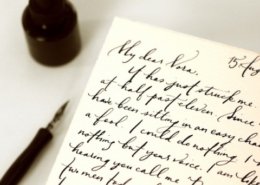 15 Aug
My dear Nora,
It has just struck me.
at half past eleven. Since
have been sitting in an easy chair
a fool. I could do nothing. I
nothing but your voice. I am like
hearing you call me